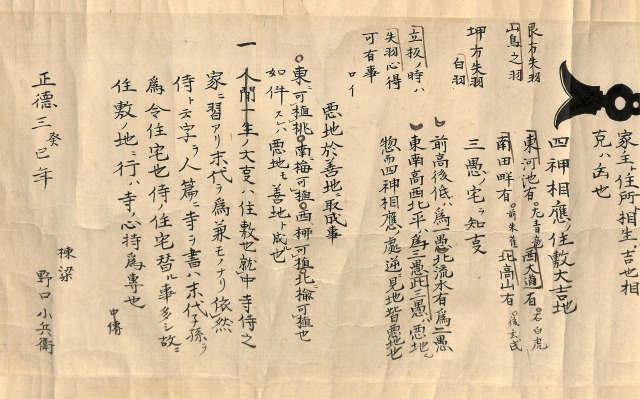 家主ト住所ト相生ハ吉也相
克ハ凶也
四神相應ノ住敷大吉地
東河池有 左青龍 西大道有 右白虎
南田畔有 前朱雀 北高山有 後玄武
三愚ノ宅ヲ知支
前高後低ハ為一愚北流水有為二愚
東南高西北平ハ為三愚此三愚ハ悪地也
惣而四神相應ノ處逆見地皆悪地也
艮方失羽
山鳥之羽
坤方失羽
白羽
立板ノ時ハ
失羽心得
可有事
口イ
悪地於善地ニ取成事
東ニ可植桃南ニ梅可植西ニ柳可植北ニ楡可植也
如件スレハ悪地モ善地ト成也
一 人間一生ノ大支ハ住敷也就中寺侍之
家ニ習アリ末代ヲ為兼モノナリ依然
侍ト云字ヲ人篇ニ寺ヲ書ハ末代子孫ヲ
為令住宅也侍ノ住宅替ル事多シ故ニ
住敷ノ地ニ行ハ寺ノ心持為専也
中傳
正徳三癸巳年
棟梁
野口小兵衛